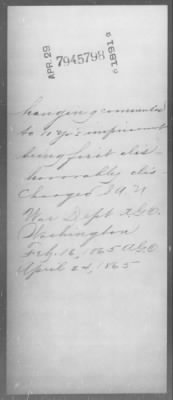 APR. 29 7945798 1891
hanging commuted
to 10 yrs imprisonment
being first dis-
honorably dis
charged
War Dept A.G.O.
Washington
Feb. 16, 1865 A.G.O.
April 24, 1865